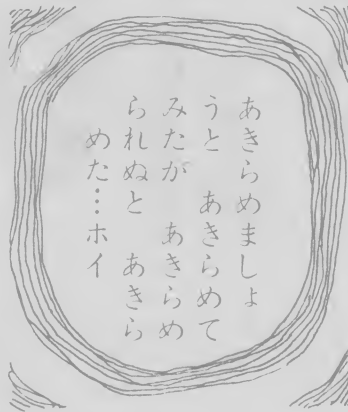 あきらめましょ
うと　あきらめて
みたが　あきらめ
られぬと　あきら
めた…ホイ